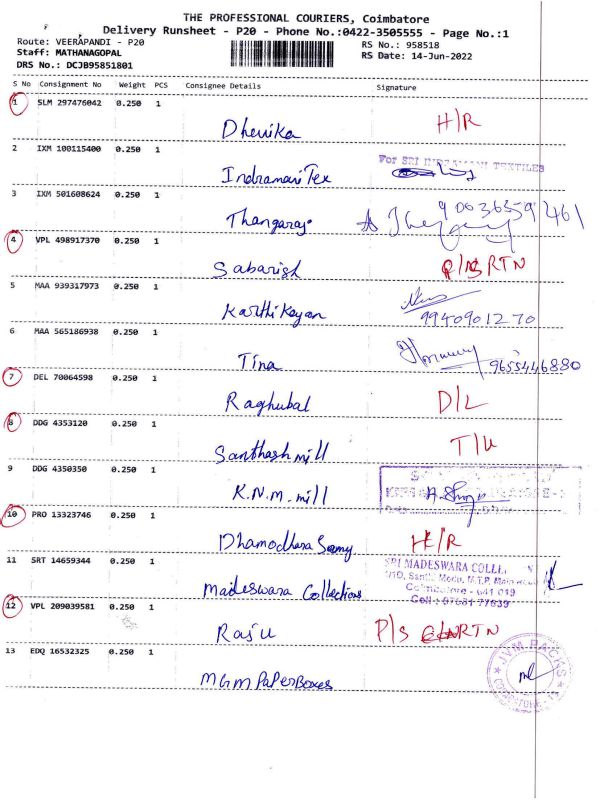 THE PROFESSIONAL COURIERS, Coimbatore
Delivery Runsheet - P20 - Phone No.:0422-3505555 - Page No.:1
Route: VEERAPANDI - P20 RS No.: 958518
Staff: MATHANAGOPAL RS Date: 14-Jun-2022
DRS No.: DCJB95851801
S No Consignment No Weight PCS Consignee Details Signature
1 SLM 297476042 0.250 1
Dhenika H/R
2 IXM 100115400 0.250 1
For SRI INDRAMANI TEXTILES
Indramani Tex
3 IXM 501608624 0.250 1
Thangaraj 9003635929461
4 VPL 498917370 0.250 1
Sabarish RTN
5 MAA 939317973 0.250 1
Karthikeyan 9940901270
6 MAA 565186938 0.250 1
Tina 9655446880
7 DEL 70064598 0.250 1
Raghubal D/L
8 DDG 4353120 0.250 1
Santhash mill T/U
9 DDG 4350350 0.250 1
K.N.M. mill
10 PRO 13323746 0.250 1
Dhamodhara Samy H/R
11 SRT 14659344 0.250 1
SRI MADESWARA COLLE
Madeswara Collections
Coimbatore - 641 019
Cell : 97881 77639
12 VPL 209039581 0.250 1
Raju P/S RTN
13 EDQ 16532325 0.250 1
JVM PACKS
MGM Paper Boxes